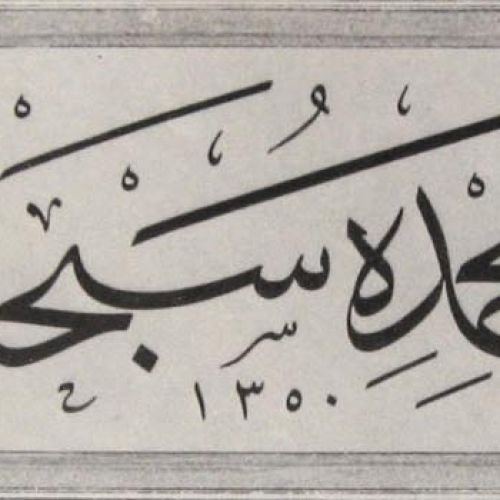 حمدِهِ سُبْحَـ
١٣٥٠